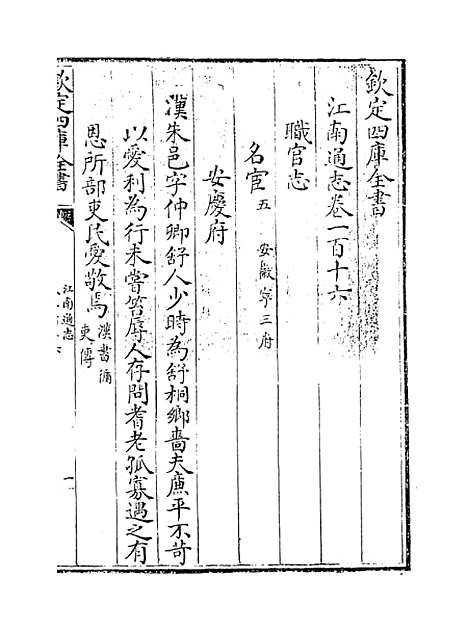 欽定四庫全書
江南通志卷一百十六
職官志
名宦五 安徽寧三府
安慶府
漢朱邑字仲卿舒人少時為舒桐鄉嗇夫廉平不苛
以愛利為行未嘗笞辱人存問耆老孤寡遇之有
恩所部吏民愛敬焉漢書循
吏傳
欽定四庫全書
江南通志
一